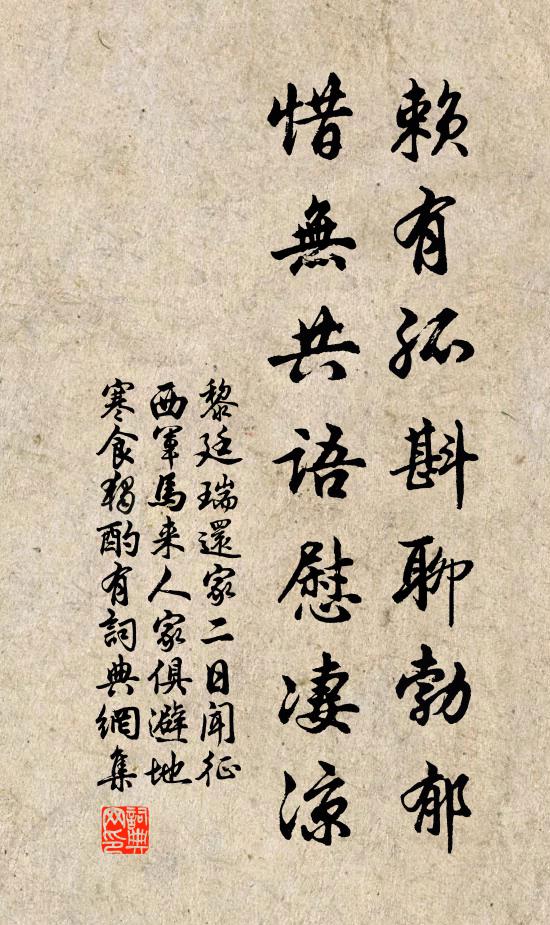 賴有孤斟聊勃郁
惜無共語慰凄涼
黎廷瑞還家二日聞征
西軍馬来人家俱避地
寒食獨酌有詞典網集
詞典
网印